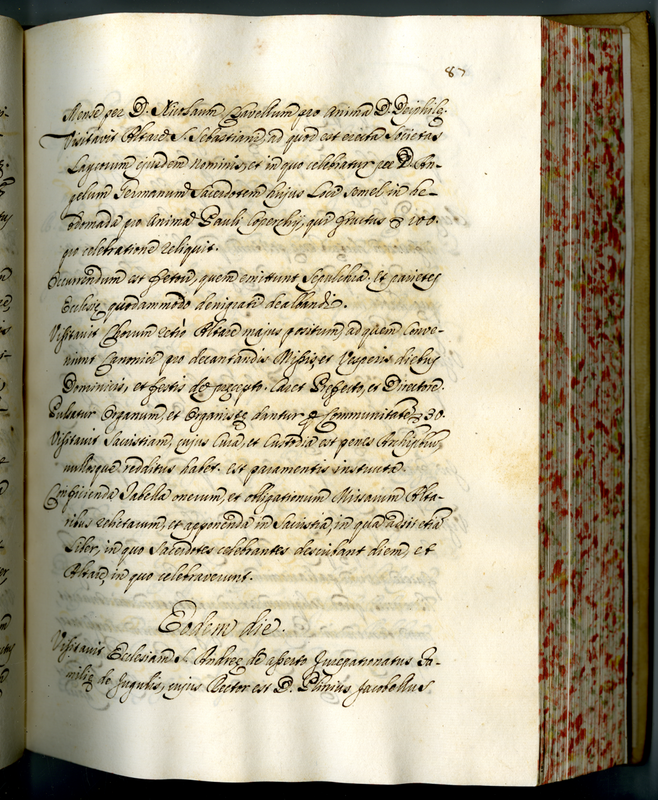 87
Mense per D. Nicolaum Gavellum pro Anima D. Deiphile.
Visitavit Altare S. Sebastiani, ad quod est erecta Societas
Laycorum ejusdem nominis, et in quo celebratur per D. An-
gelum Germanum Sacerdotem hujus Loci semel in he-
bdomada pro Anima Pauli, qui fructus 100.
pro celebratione reliquit.
Occurrendum est fetori, quem emittunt Sepulchra. Et parietes
Ecclesie quodammodo denigrate dealbandi.
Visitavit Chorum retro Altare majus positum, ad quem Conve-
niunt Canonici pro decantandis Missis, et Vesperis diebus
Dominicis, et festis de precepto. Caret Prefecto, et Directore.
Pulsatur Organum, et Organiste dantur Communitate 30.
Visitavit Sacristiam, cujus Cura, et Custodia est penes
nullosque redditus habet. est paramentis instructa.
Conficienda Tabella onerum, et obligationum Missarum Alta-
ribus rebitarum, et apponenda in Sacristia, in qua adsit etiã
Liber, in quo Sacerdotes celebrantes describant diem, et
Altare, in quo celebraverunt.
Eodem die.
Visitavit Ecclesiam S. Andree de asserto Jurepatronatus Fa-
milie de Jugulis, cujus Rector est D. Plinius Jacobellus